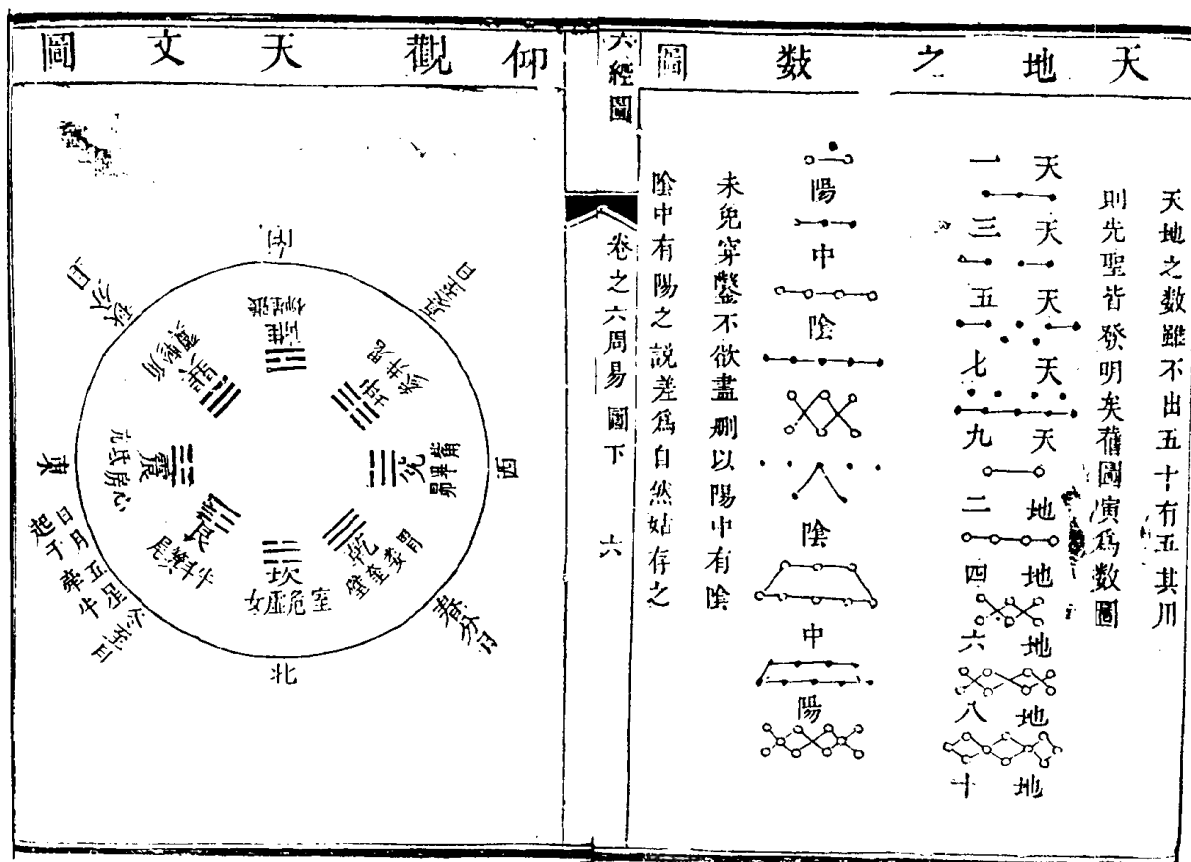 天地之數圖
天地之数雖不出五十有五其用
則先聖皆發明矣舊圖演爲数圖
天一
天三
天五
天七
天九
地二
地四
地六
地八
地十
陽中陰
陰中陽
未免穿鑿不欲盡刪以陽中有陰
陰中有陽之說差爲自然姑存之
六經圖
卷之六周易圖下
六
仰觀天文圖
南
夏至日
西
春分日
北
冬至日
日月五星
起于牽牛
東
秋分日
離
柳星張
坤
兌
昴畢觜
乾
壁奎婁胃
坎
女虛危室
艮
尾箕斗牛
震
亢氐房心
巽